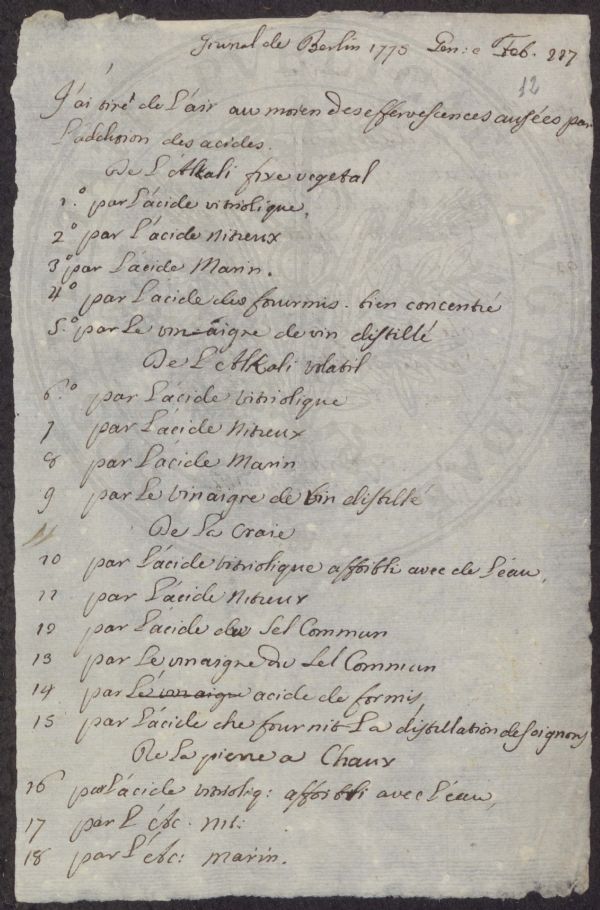 Jrunal de Berlin 1775 Gen: e Feb. 227
12
J'ai tiré de L'air au moien des effervescences ausées par
L'addition des acides.
De L'Alkali fixe vegetal
1.º par L'acide vitriolique,
2º par L'acide Nitreux
3º par L'acide Marin.
4º par L'acide des fourmis. bien concentré
5.º par Le vinaigre de vin distillé
De L'Alkali volatil
6.º par L'acide vitriolique
7 par L'acide Nitreux
8 par L'acide Marin
9 par Le vinaigre de vin distillé
De La Craie
10 par L'acide vitriolique affoibli avec de L'eau,
11 par L'acide Nitreux
12 par L'acide du Sel Commun
13 par Le vinaigre du Sel Commun
14 par Le vinaigre acide de formis,
15 par L'acide che fournit La distillation des oignons
De La pierre a Chaux
16 par L'acide vitrioliq: affoibli avec L'eau,
17 par L'etc. nit:
18 par L'etc: marin.